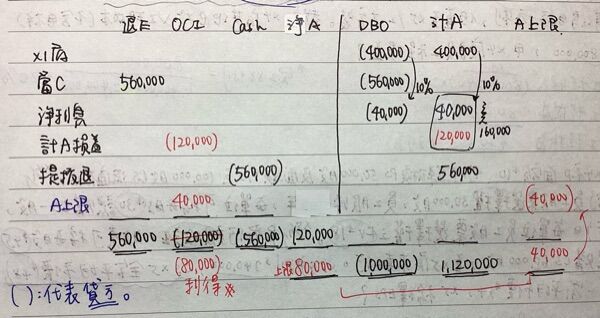 退E OCI Cash 淨A DBO 計A A上限
X1底 (400,000) 400,000
當C 560,000 (560,000) 10% 10%
淨利息 (40,000) 40,000
計A損益 (120,000) 120,000 160,000
提撥退 (560,000) 560,000
A上限 40,000 (40,000)
560,000 (120,000) (560,000) 120,000
(80,000) 上限80,000 (1000,000) 1,120,000 40,000
( ):代表貸方。